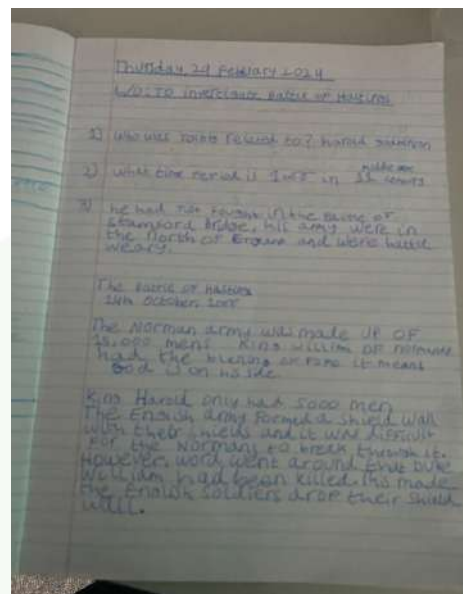 Thursday 29 February 2024
L/O: TO investigate Battle of Hastings
1) who was related to? Harold
2) what time period is 1066 in middle age 11th century
3) he had just fought in the Battle of
Stamford Bridge, his army were in
the North of England and were battle
weary.
The Battle of Hastings
14th October 1066
The Norman army was made up OF
15,000 mens. King William OF Normandy
had the blessing OF Pope it means
God is on his side
King Harold only had 5000 men
The English army formed a shield wall
with their shields and it was difficult
for the Normans to break through it.
However, word went around that Duke
William had been killed. This made
the English soldiers drop their shield
wall.